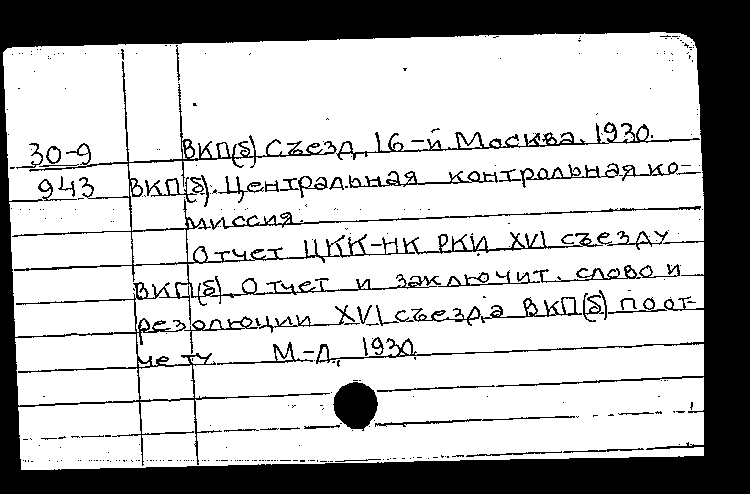 30-9 ВКП(б). Съезд, 16-й. Москва. 1930.
943 ВКП(б). Центральная контрольная ко-
миссия.
Отчет ЦКК-НК РКИ XVI съезду
ВКП(б). Отчет и заключит. слово и
резолюции XVI съезда ВКП(б) по от-
чету. М.-Л., 1930.